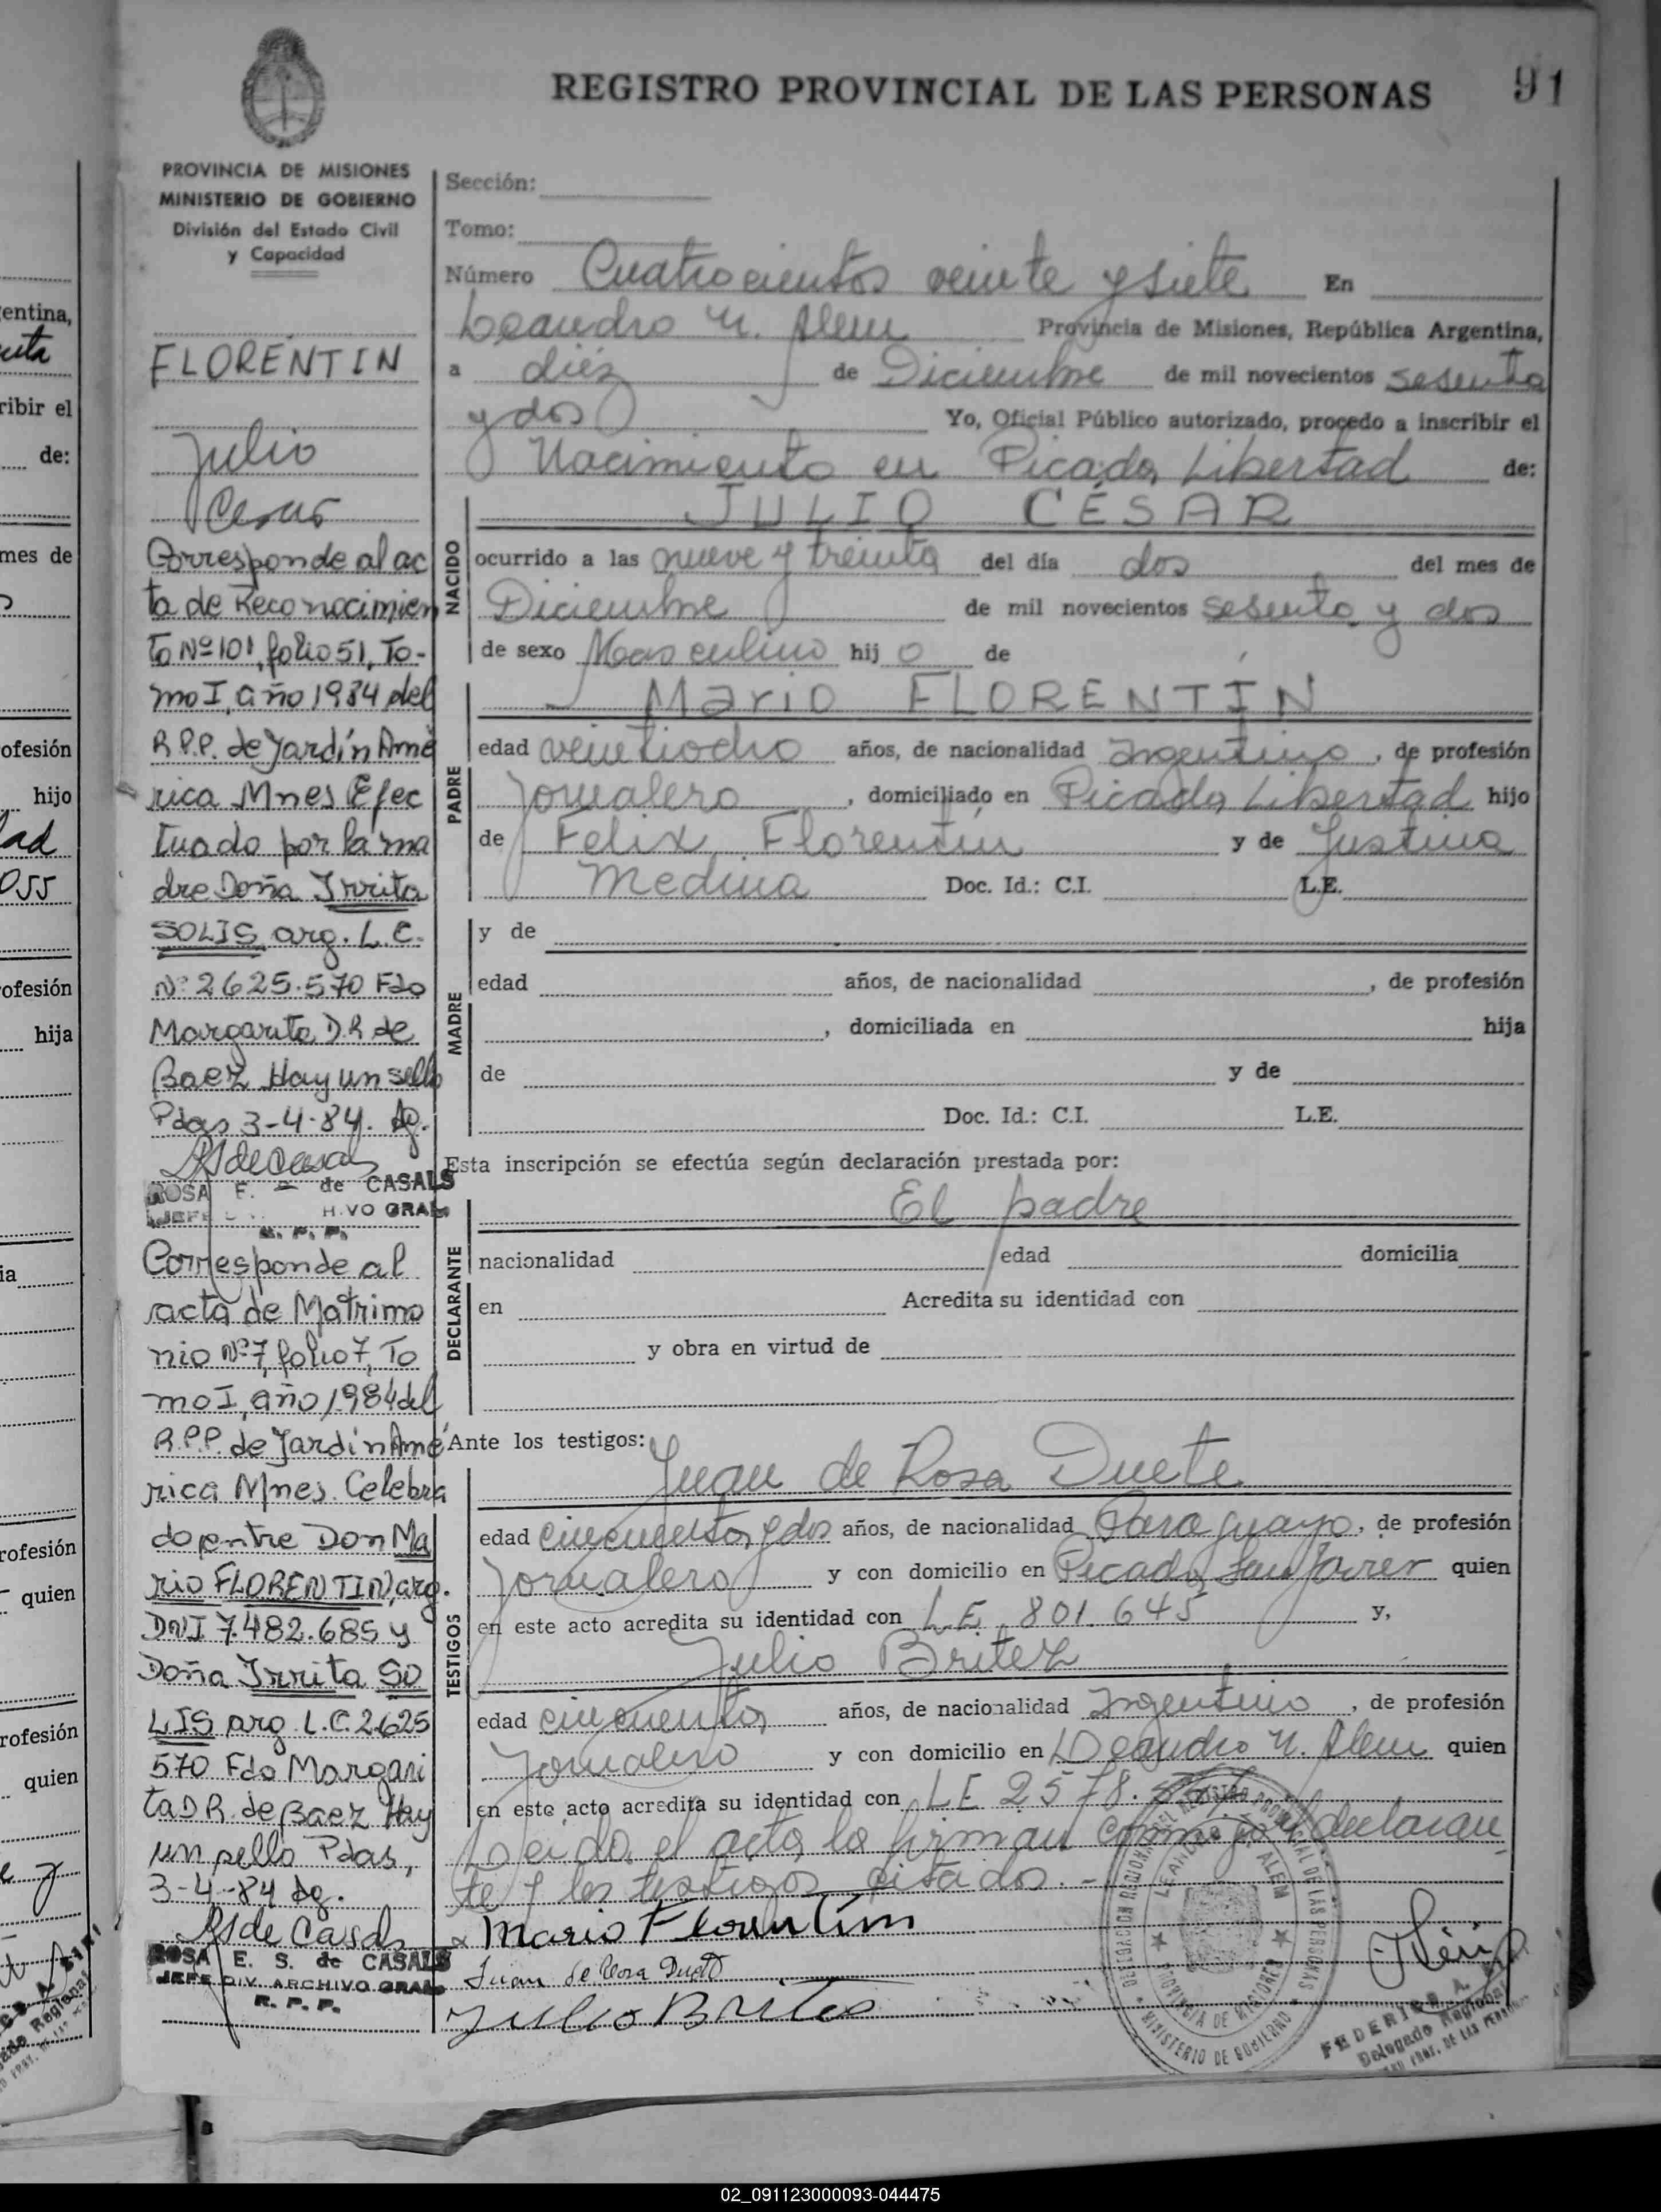 REGISTRO PROVINCIAL DE LAS PERSONAS
91
PROVINCIA DE MISIONES
MINISTERIO DE GOBIERNO
División del Estado Civil
y Capacidad
FLORENTIN
Julio
Cesar
Corresponde al ac
ta de Reconocimien
to Nº 101, folio 51, To-
mo I, año 1984 del
R.P.P. de Jardín Amé
rica Mnes Efec
tuado por la ma
dre Doña Irrita
SOLIS arg. L.C.
Nº 2625.570 Fdo
Margarita D.R de
Baez Hay un sello
Pdas 3-4-84.
ROSA E. de CASALS
JEFE HIVO GRAL
R. P. P.
Corresponde al
acta de Matrimo
nio Nº 7, folio 7, To
mo I, año 1984 del
R.P.P. de Jardín Amé
rica Mnes. Celebra
do entre Don Ma
rio FLORENTIN, arg.
DNI 7.482.685 y
Doña Irrita SO
LIS arg. L.C. 2625
570 Fdo Margari
ta D.R. de Baez Hay
un sello Pdas,
3-4-84
ROSA E. S. de CASALS
JEFE DIV. ARCHIVO GRAL
R. P. P.
Sección:
Tomo:
Número Cuatrocientos veinte y siete En
Leandro N. Alem Provincia de Misiones, República Argentina,
a diéz de Diciembre de mil novecientos sesenta
y dos Yo, Oficial Público autorizado, procedo a inscribir el
Nacimiento en Picada Libertad de:
NACIDO
JULIO CÉSAR
ocurrido a las nueve y treinta del día dos del mes de
Diciembre de mil novecientos sesenta y dos
de sexo Masculino hij o de
PADRE
Mario FLORENTIN
edad veintiocho años, de nacionalidad Argentino, de profesión
Jornalero, domiciliado en Picada Libertad hijo
de Felix Florentin y de Justina
Medina Doc. Id.: C.I. L.E.
MADRE
y de
edad años, de nacionalidad , de profesión
, domiciliada en hija
de y de
Doc. Id.: C.I. L.E.
Esta inscripción se efectúa según declaración prestada por:
DECLARANTE
El padre
nacionalidad edad domicilia
en Acredita su identidad con
y obra en virtud de
Ante los testigos:
TESTIGOS
Juan de Rosa Duete
edad cincuenta y dos años, de nacionalidad Paraguayo, de profesión
Jornalero y con domicilio en Picada San Javier quien
en este acto acredita su identidad con L.E. 801.645 y,
Julio Britez
edad cincuenta años, de nacionalidad Argentino, de profesión
Jornalero y con domicilio en Leandro N. Alem quien
en este acto acredita su identidad con LE 2578.
Leida el acta la firman conmigo el declaran
te y los testigos citados. -
Mario Florentin
Juan de Rosa Duete
Julio Britez
DELEGACION REGIONAL DEL REGISTRO PROVINCIAL DE LAS PERSONAS
LEANDRO N. ALEM
PROVINCIA DE MISIONES
MINISTERIO DE GOBIERNO
FEDERICO A.
Delegado Regional
PROV. DE LAS PERSONAS
entina,
ribir el
de:
mes de
ofesión
hijo
055
ofesión
hija
ia
rofesión
quien
rofesión
quien
02_091123000093-044475